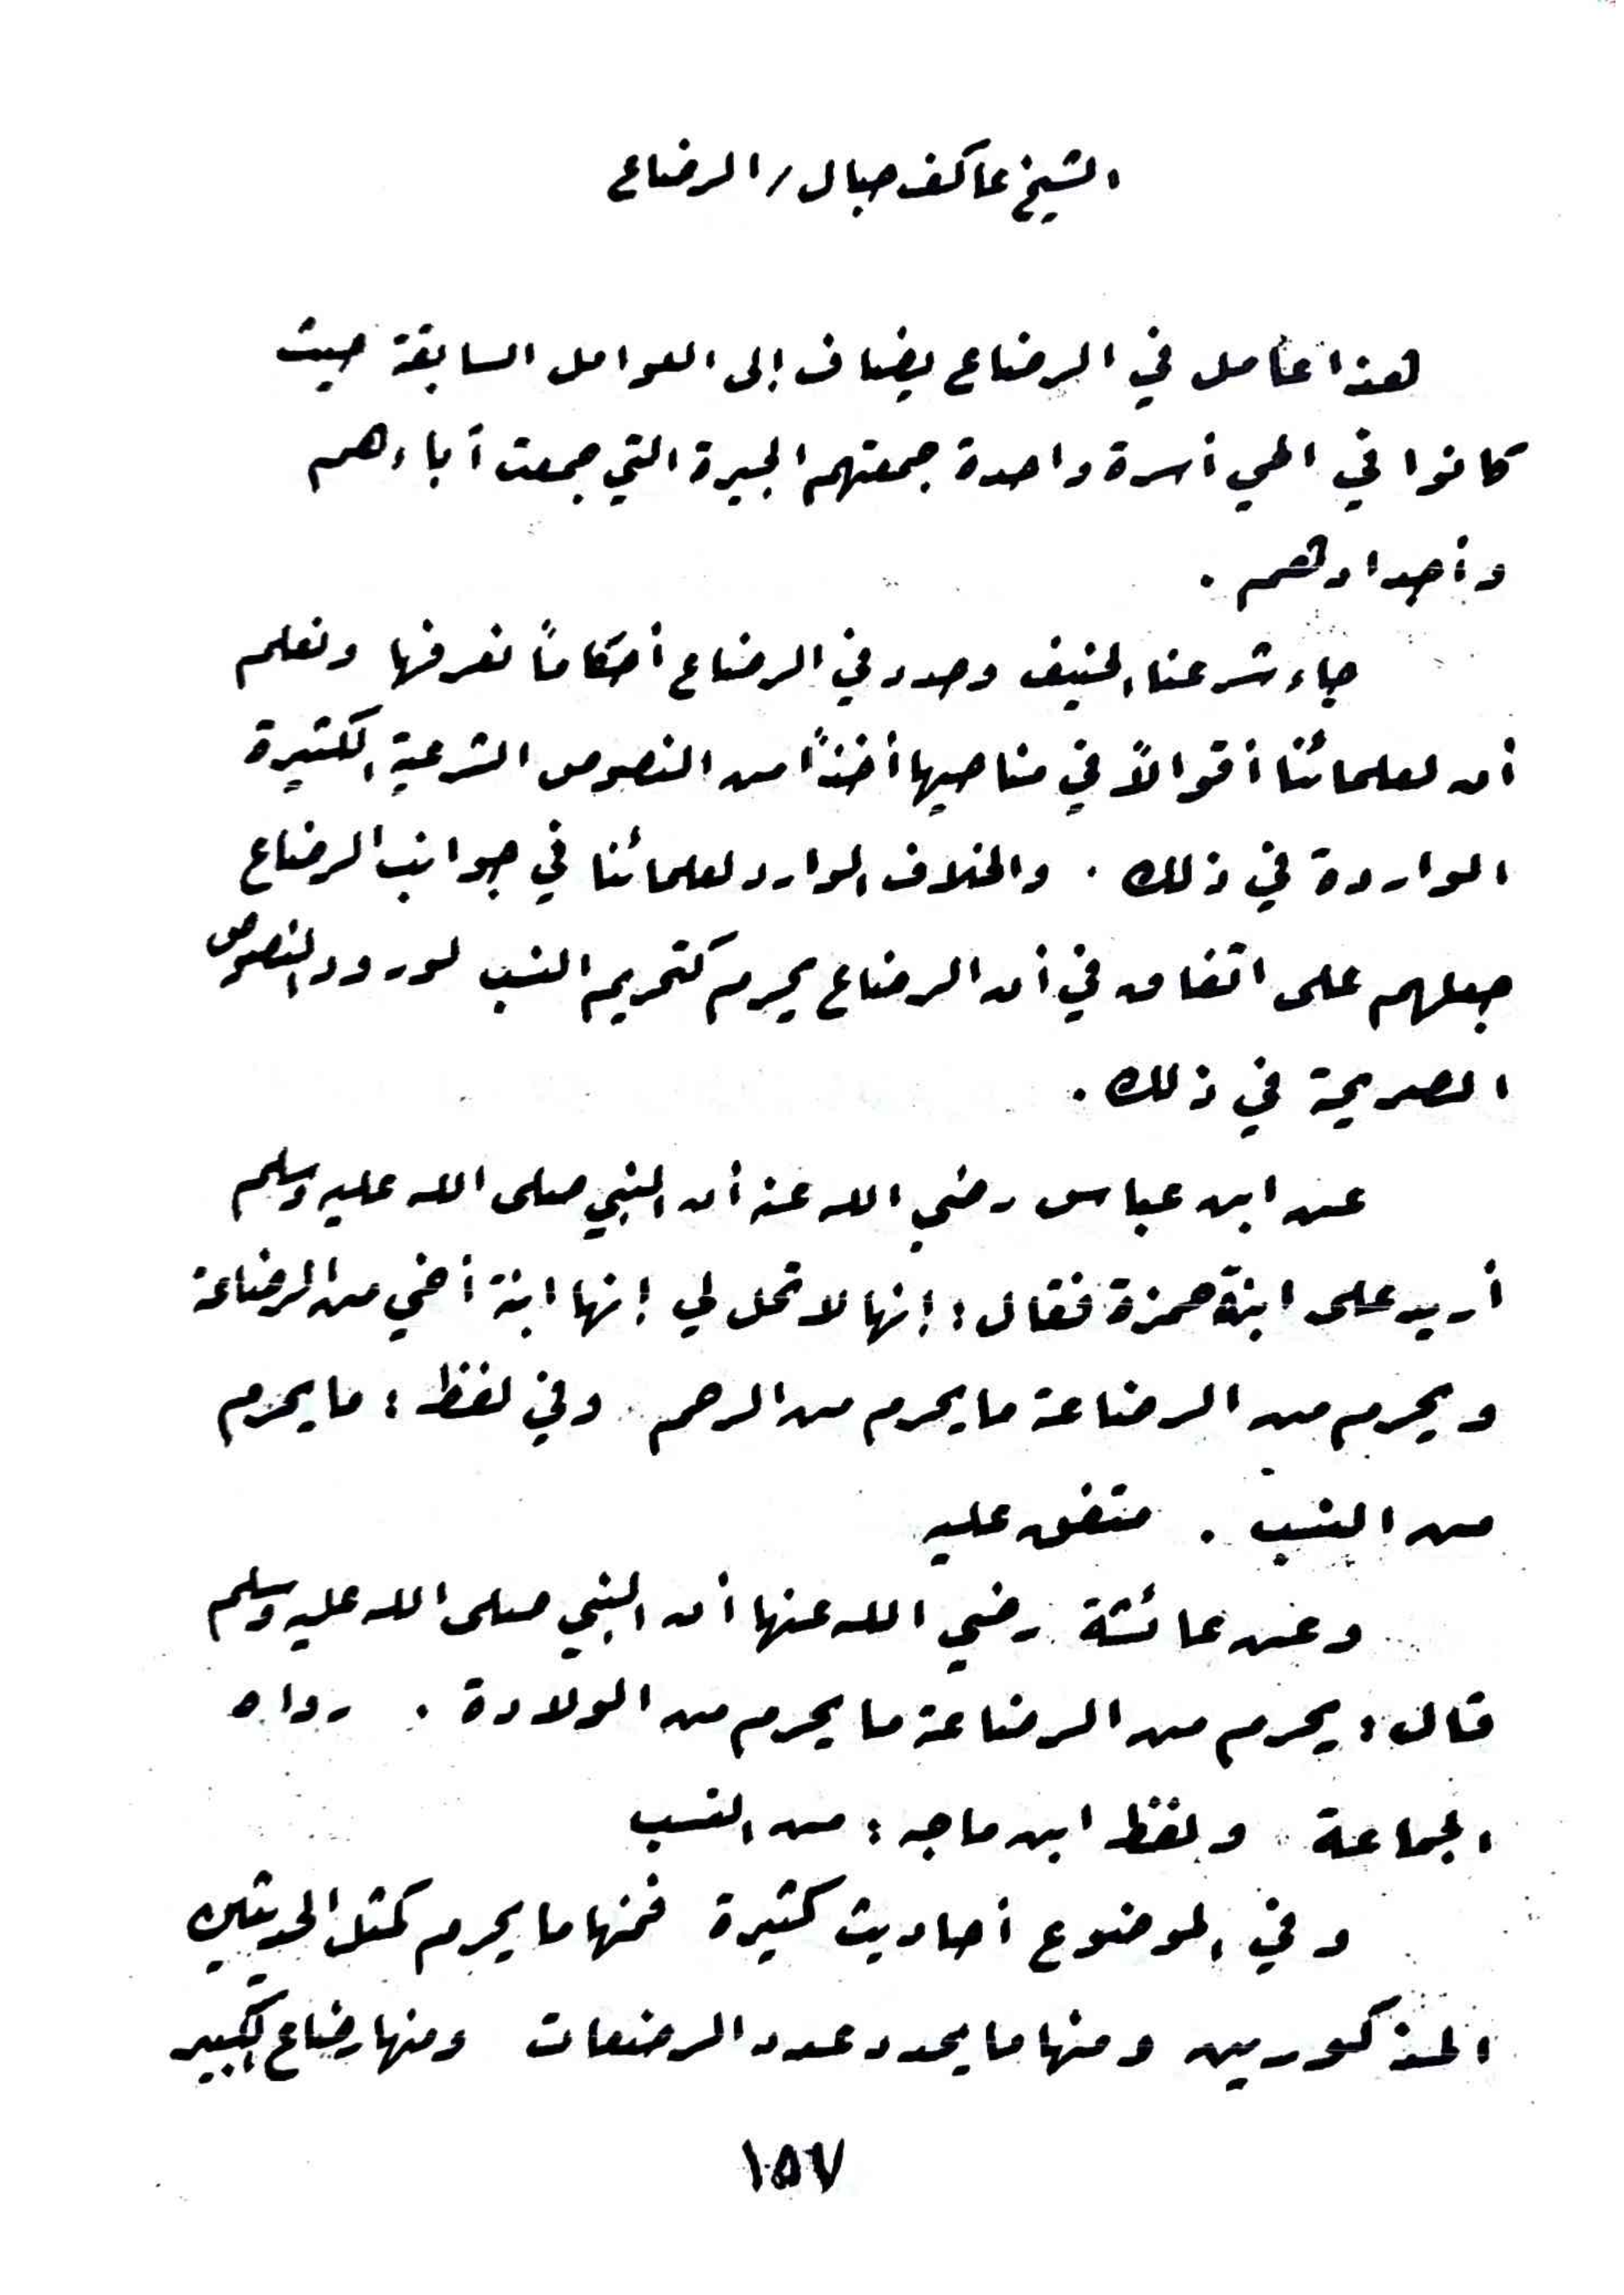 الشيخ عاكف حبال / الرضاع
هذا عامل في الرضاع يضاف إلى العوامل السابقة حيث
كانوا في الحي أسرة واحدة جمعتهم الجيرة التي جمعت آباءهم
وأجدادهم .
جاء شرعنا الحنيف وحدد في الرضاع أحكاماً نعرفها ونعلم
أن لعلمائنا أقوالاً في مناحيها أخذاً من النصوص الشرعية الكثيرة
الواردة في ذلك . والخلاف الوارد لعلمائنا في جوانب الرضاع
جعلهم على اتفاق في أن الرضاع يحرم كتحريم النسب لورود النصوص
الصريحة في ذلك .
عن ابن عباس رضي الله عنه أن النبي صلى الله عليه وسلم
أريد على ابنة حمزة فقال : إنها لا تحل لي إنها ابنة أخي من الرضاعة
ويحرم من الرضاعة ما يحرم من الرحم . وفي لفظ : ما يحرم
من النسب . متفق عليه
وعن عائشة رضي الله عنها أن النبي صلى الله عليه وسلم
قال : يحرم من الرضاعة ما يحرم من الولادة . رواه
الجماعة ولفظ ابن ماجه : من النسب
وفي الموضوع أحاديث كثيرة فمنها ما يحرم كمثل الحديثين
المذكورين ومنها ما يحدد عدد الرضعات ومنها رضاع الكبير
١٥٧